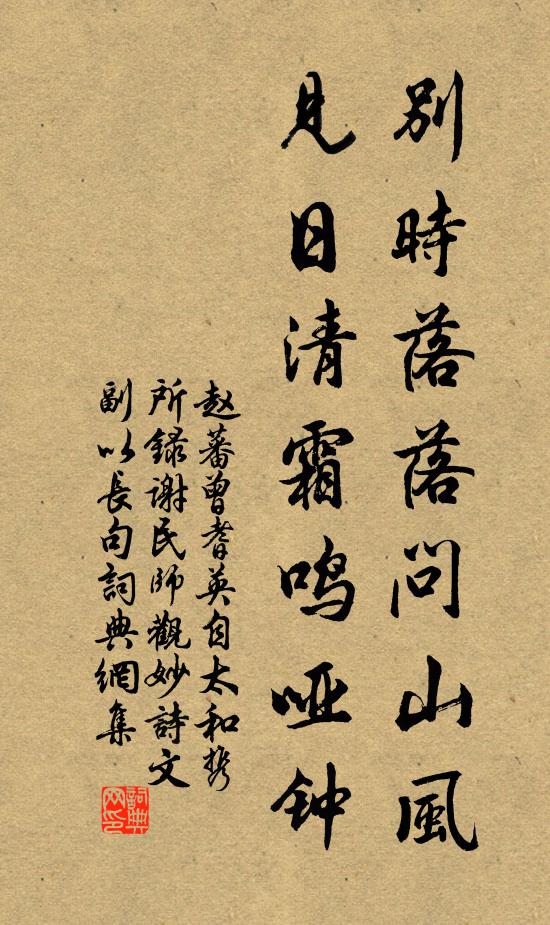 別時落落問山風
見日清霜鳴啞钟
赵蕃曾耆英自太和携
所録謝民師觀妙詩文
副以長句詞典網集
詞典网印